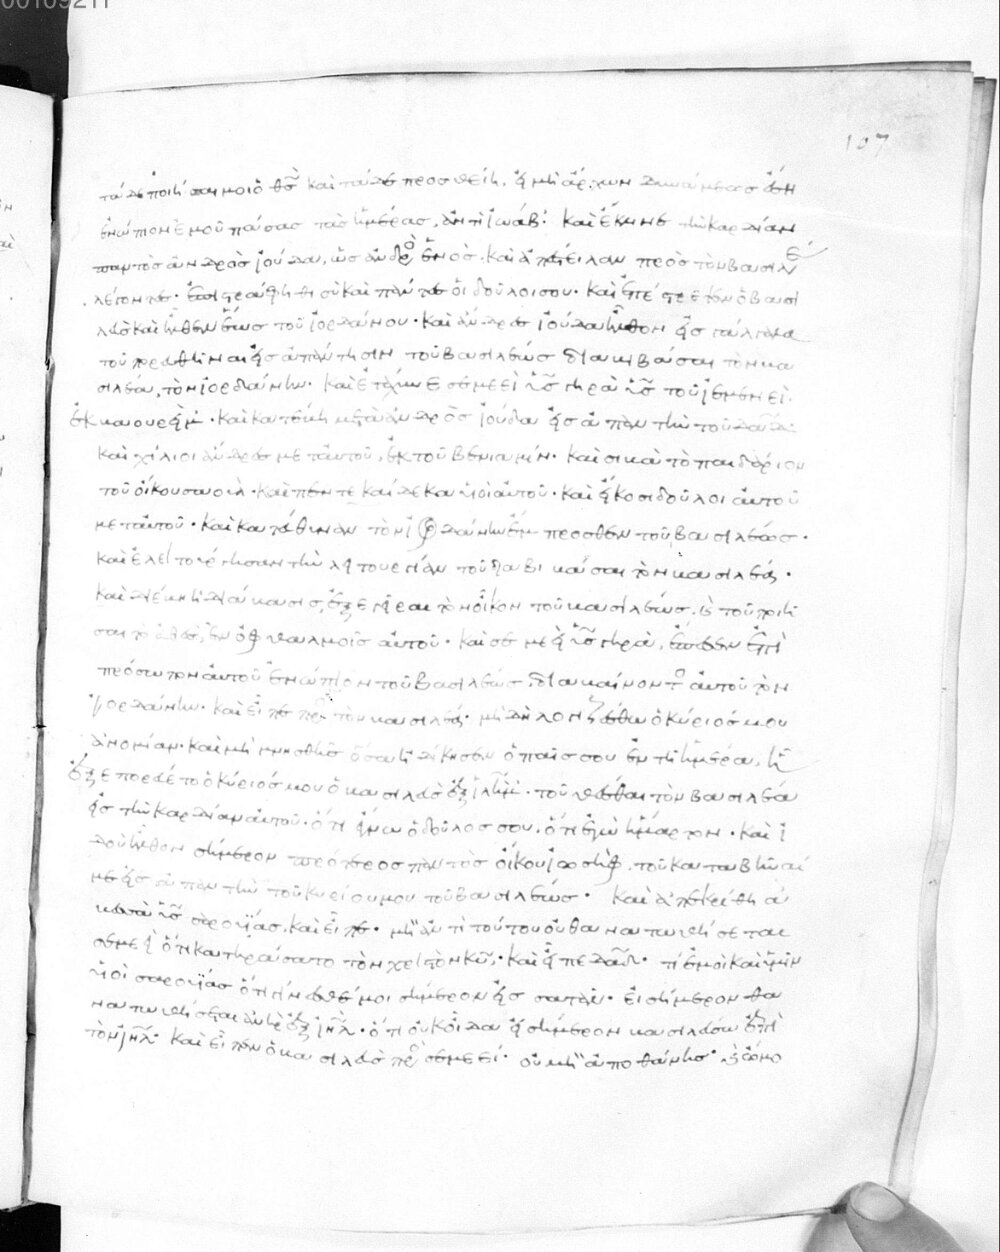 107
τάδε ποιήσαι μοι ὁ θς καὶ τάδε προσθείη, εἰ μὴ ἄρχων δυνάμεως ἔση
ἐνώπιον ἐμοῦ πάσας τὰς ἡμέρας, ἀντὶ ἰωάβ· καὶ ἔκλινε τὴν καρδίαν
παντὸς ἀνδρὸς ἰούδα, ὡς ἀνδρὸς ἑνός· καὶ ἀπέστειλαν πρὸς τὸν βασιλέα
λέγοντες· ἐπιστράφηθι σὺ καὶ πάντες οἱ δοῦλοι σου· καὶ ἐπέστρεψεν ὁ βασι
λεὺς καὶ ἦλθεν ἕως τοῦ ἰορδάνου· καὶ ἄνδρες ἰούδα ἦλθον εἰς γάλγαλα
τοῦ πορευθῆναι εἰς ἀπάντησιν τοῦ βασιλέως διαβιβάσαι τὸν βα
σιλέα, τὸν ἰορδάνην· καὶ ἐτάχυνε σεμεεὶ υἱὸς γηρὰ υἱοῦ τοῦ ἰεμενεὶ
ἐκ βαουρείμ· καὶ κατέβη μετὰ ἀνδρὸς ἰούδα εἰς ἀπαντὴν τοῦ δαδ
καὶ χίλιοι ἄνδρες μετ αὐτοῦ, ἐκ τοῦ βενιαμίν· καὶ σιβὰ τὸ παιδάριον
τοῦ οἴκου σαουλ· καὶ πέντε καὶ δέκα υἱοὶ αὐτοῦ· καὶ εἴκοσι δοῦλοι αὐτοῦ
μετ αὐτοῦ· καὶ κατεύθυναν τὸν ἰορδάνην ἔμπροσθεν τοῦ βασιλέως·
καὶ ἐλειτούργησαν τὴν λειτουργίαν τοῦ διαβιβάσαι τὸν βασιλέα·
καὶ διέβη ἡ διάβασις, ἐξεγεῖραι τὸν οἶκον τοῦ βασιλέως, καὶ τοῦ ποιῆ
σαι τὸ εὐθὲς, ἐν ὀφθαλμοῖς αὐτοῦ· καὶ σεμεεὶ υἱὸς γηρὰ, ἔπεσεν ἐπὶ
πρόσωπον αὐτοῦ ἐνώπιον τοῦ βασιλέως, διαβαίνοντος αὐτοῦ τὸν
ἰορδάνην· καὶ εἶπε πρὸς τὸν βασιλέα· μὴ δὴ λογιζέσθω ὁ κύριός μου
ἀνομίαν· καὶ μὴ μνησθῆς ὅσα ἠδίκησεν ὁ παῖς σου ἐν τῇ ἡμέρα, ἧ
ἐξεπορεύετο ὁ κύριός μου ὁ βασιλεὺς ἐξ ἰλημ· τοῦ θέσθαι τὸν βασιλέα
εἰς τὴν καρδίαν αὐτοῦ· ὅτι ἔγνω ὁ δοῦλος σου, ὅτι ἐγὼ ἥμαρτον· καὶ ἰ
δοὺ ἦλθον σήμερον πρότερος παντὸς οἴκου ἰωσήφ, τοῦ καταβῆναί
με εἰς ἀπαντὴν τοῦ κυρίου μου τοῦ βασιλέως· καὶ ἀπεκρίθη ἀ
βεσσὰ υἱὸς σαρουΐας, καὶ εἶπε· μὴ ἀντὶ τούτου οὐ θανατωθήσεται
σεμεεὶ ὅτι κατηράσατο τὸν χριστὸν κυ· καὶ εἶπε δαδ· τί ἐμοὶ καὶ ὑμῖν
υἱοὶ σαρουΐας ὅτι γίνεσθέ μοι σήμερον εἰς σατάν· εἰ σήμερον θα
νατωθήσεται ἀνὴρ ἐξ ἰηλ· ὅτι οὐκ οἶδα εἰ σήμερον βασιλεύω ἐπὶ
τὸν ἰηλ· καὶ εἶπεν ὁ βασιλεὺς πρὸς σεμεεί· οὐ μὴ ἀποθάνης· καὶ ὤμο